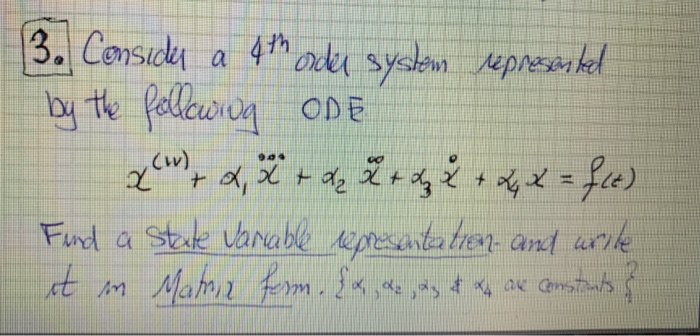 3. Consider a 4th order system represented
by the following ODE
x^(IV) + α₁ x⃛ + α₂ ẍ + α₃ ẋ + α₄ x = f(t)
Find a State Variable representation and write
it in Matrix form. {α₁, α₂, α₃ & α₄ are constants}